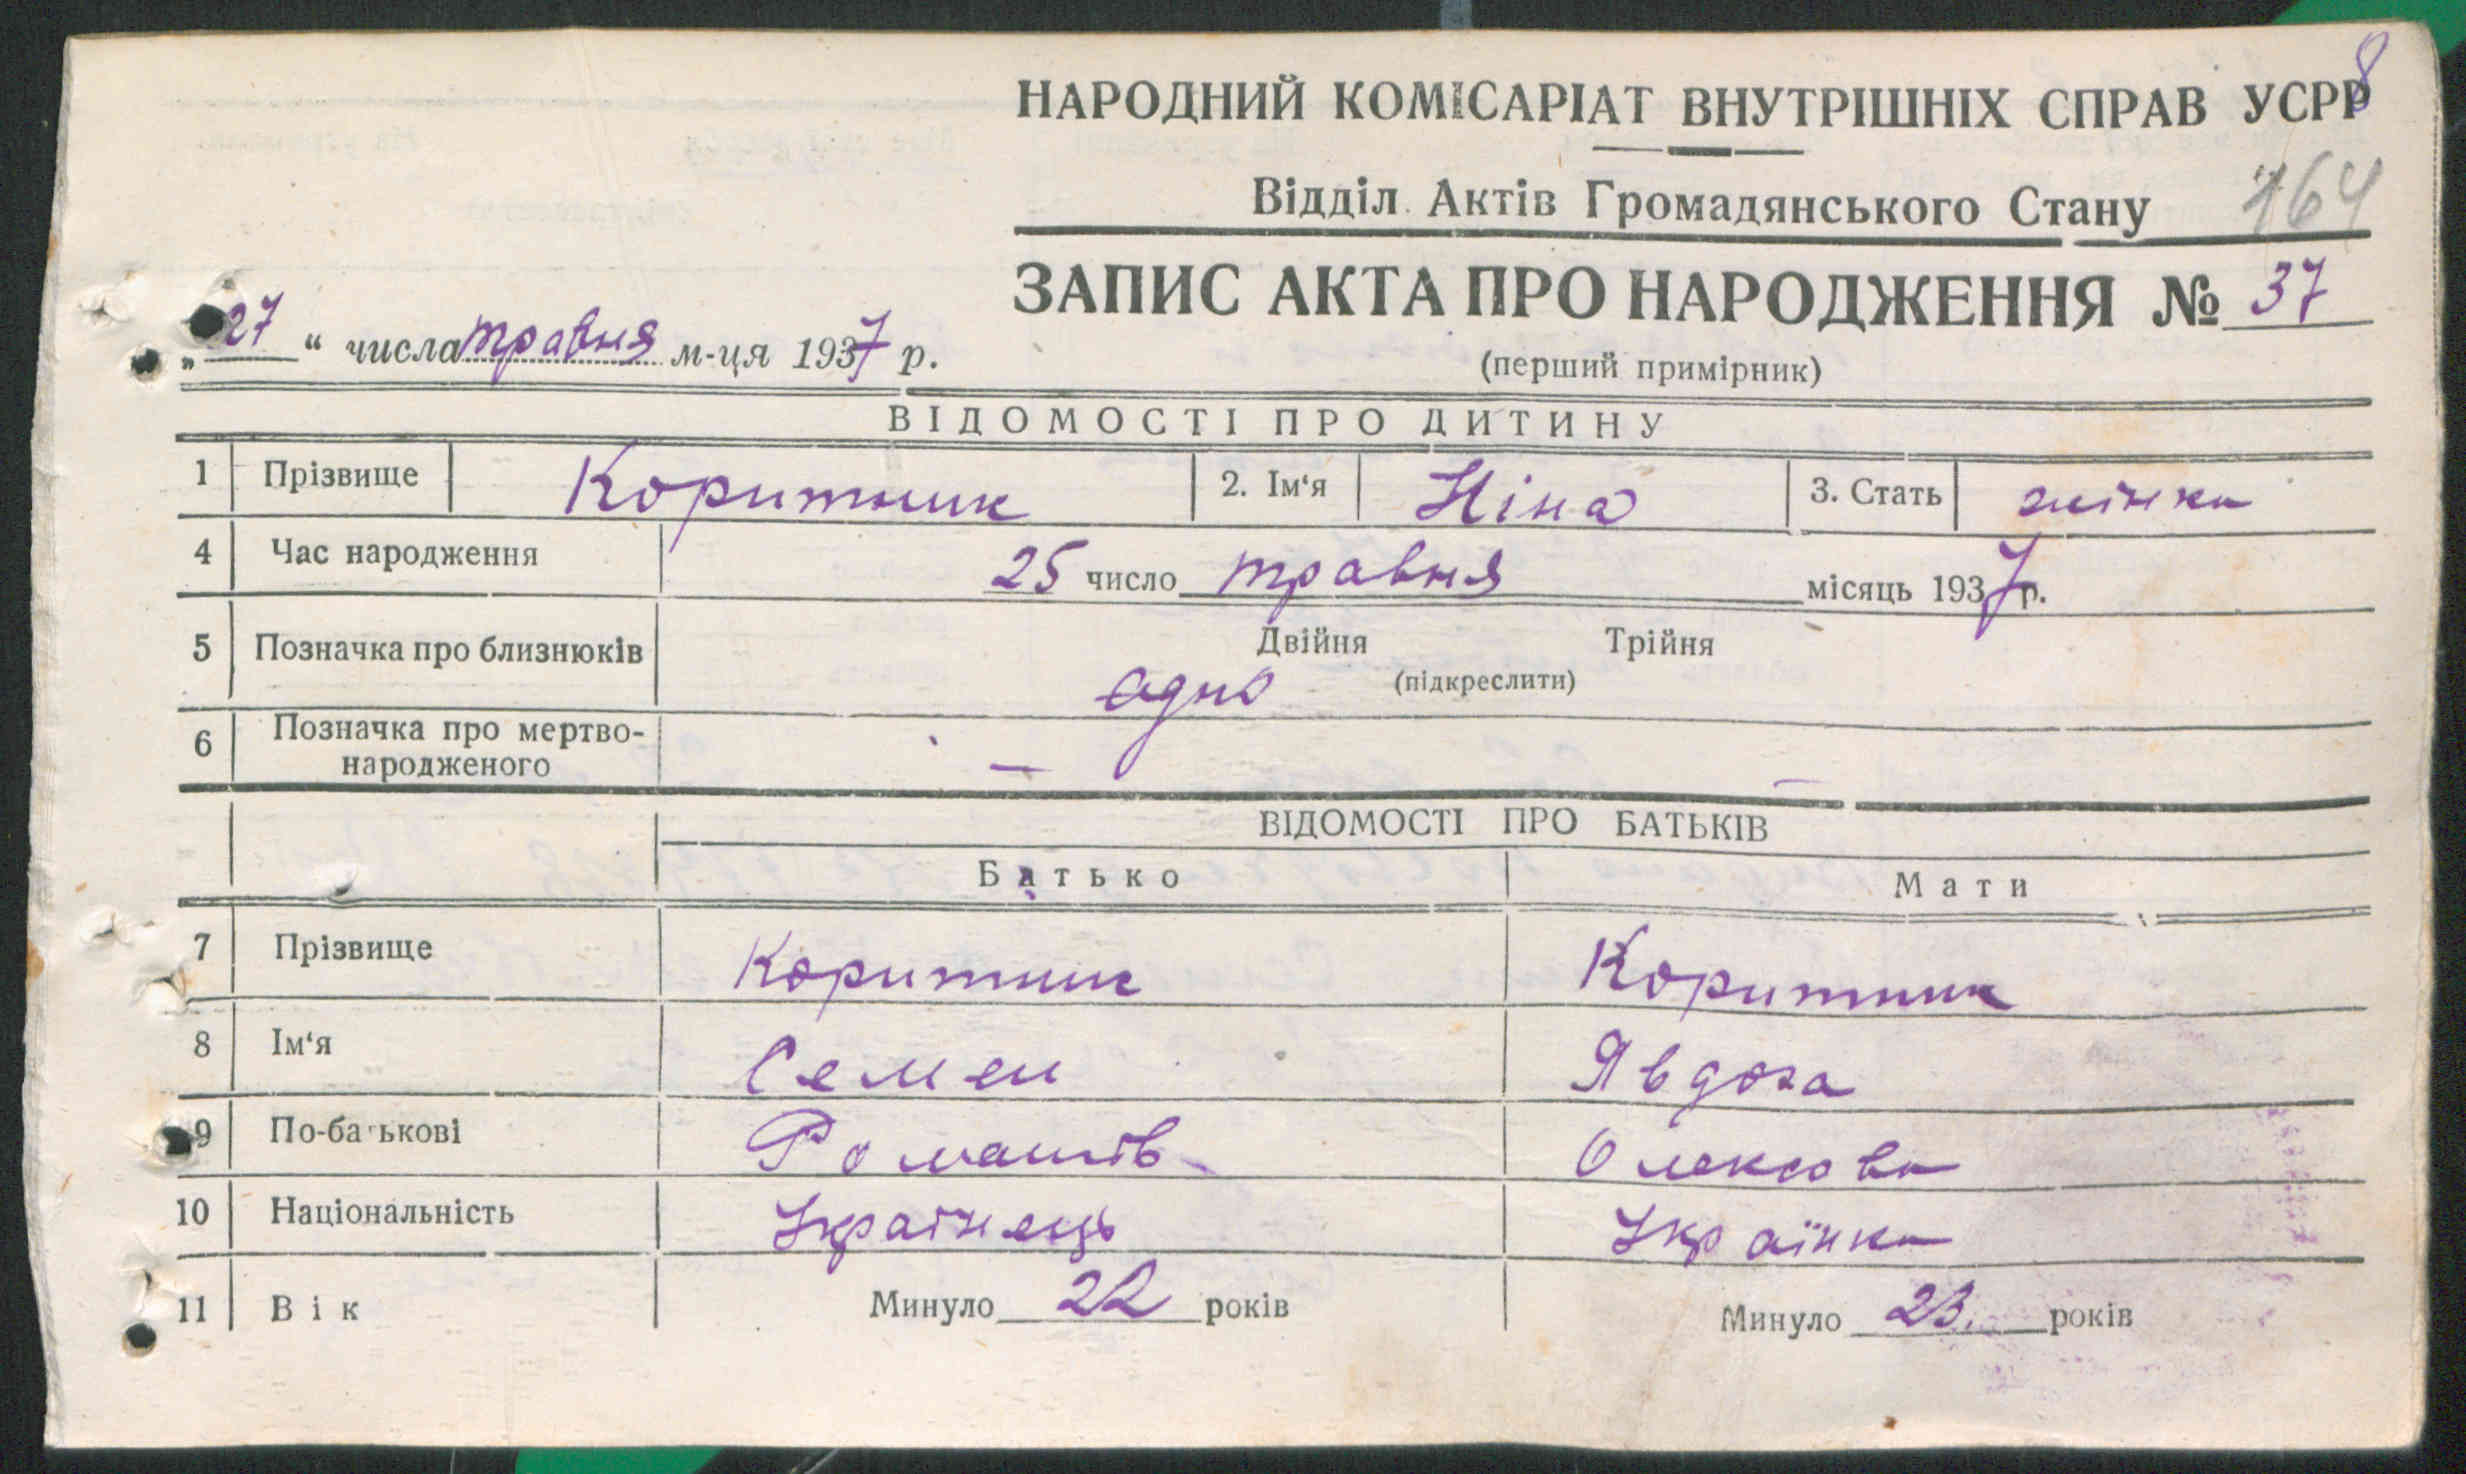 8
НАРОДНИЙ КОМІСАРІАТ ВНУТРІШНІХ СПРАВ УСРР
Відділ Актів Громадянського Стану 164
ЗАПИС АКТА ПРО НАРОДЖЕННЯ № 37
„27“ числа травня м-ця 1937 р.
(перший примірник)
ВІДОМОСТІ ПРО ДИТИНУ
1 Прізвище Коритник 2. Ім‘я Ніна 3. Стать жінка
4 Час народження 25 число травня місяць 1937 р.
5 Позначка про близнюків Двійня Трійня
одно (підкреслити)
6 Позначка про мертво-
народженого — —
ВІДОМОСТІ ПРО БАТЬКІВ
Батько Мати
7 Прізвище Коритник Коритник
8 Ім‘я Семен Явдоха
9 По-батькові Романів Олексова
10 Національність Українець Українка
11 Вік Минуло 22 років Минуло 23. років